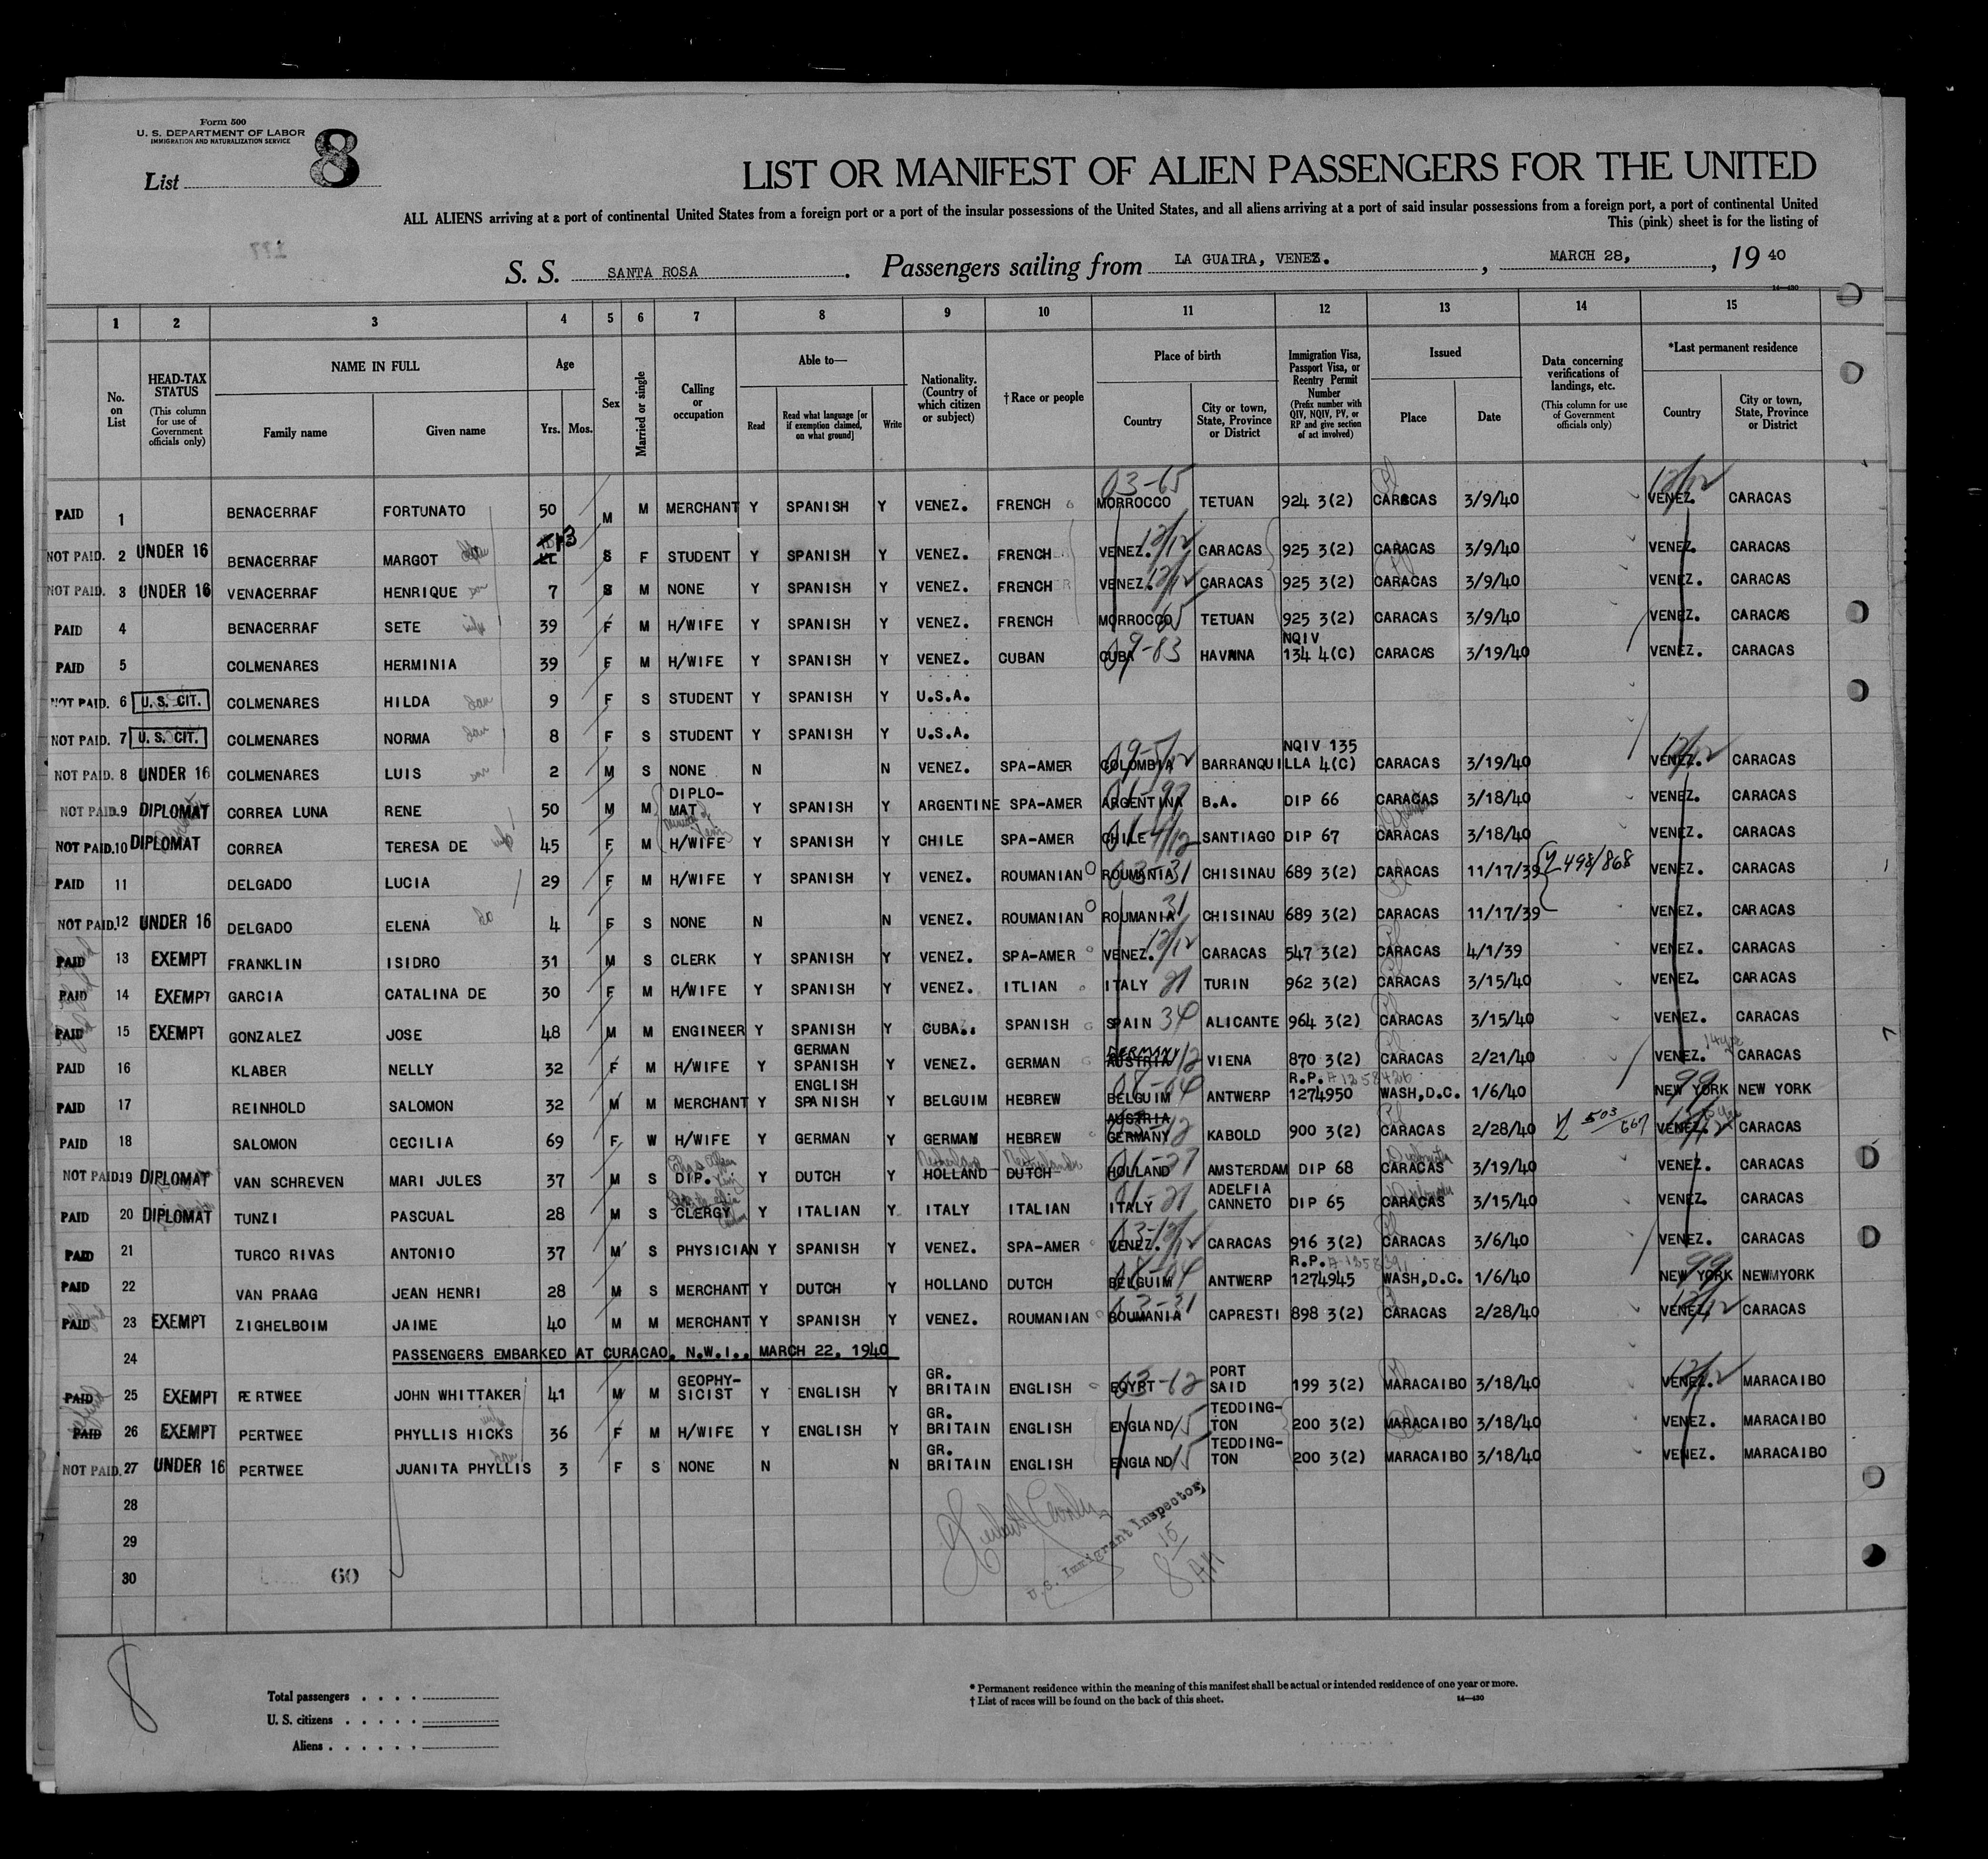 Form 500
U. S. DEPARTMENT OF LABOR
IMMIGRATION AND NATURALIZATION SERVICE
List 8
LIST OR MANIFEST OF ALIEN PASSENGERS FOR THE UNITED
ALL ALIENS arriving at a port of continental United States from a foreign port or a port of the insular possessions of the United States, and all aliens arriving at a port of said insular possessions from a foreign port, a port of continental United
This (pink) sheet is for the listing of
S. S. SANTA ROSA. Passengers sailing from LA GUAIRA, VENEZ., MARCH 28, 19 40
14—430
1 2 3 4 5 6 7 8 9 10 11 12 13 14 15
No. on List
HEAD-TAX STATUS (This column for use of Government officials only)
NAME IN FULL Family name Given name
Age Yrs. Mos.
Sex
Married or single
Calling or occupation
Able to— Read Read what language [or if exemption claimed, on what ground] Write
Nationality. (Country of which citizen or subject)
† Race or people
Place of birth Country City or town, State, Province or District
Immigration Visa, Passport Visa, or Reentry Permit Number (Prefix number with QIV, NQIV, PV, or RP and give section of act involved)
Issued Place Date
Data concerning verifications of landings, etc. (This column for use of Government officials only)
*Last permanent residence Country City or town, State, Province or District
PAID 1 BENACERRAF FORTUNATO 50 M M MERCHANT Y SPANISH Y VENEZ. FRENCH MORROCCO 03-65 TETUAN 924 3(2) CARACAS 3/9/40 VENEZ. 12/12 CARACAS
NOT PAID. 2 UNDER 16 BENACERRAF MARGOT 13 S F STUDENT Y SPANISH Y VENEZ. FRENCH VENEZ. 12/12 CARACAS 925 3(2) CARACAS 3/9/40 VENEZ. CARACAS
NOT PAID. 3 UNDER 16 VENACERRAF HENRIQUE son 7 S M NONE Y SPANISH Y VENEZ. FRENCH VENEZ. 12/12 CARACAS 925 3(2) CARACAS 3/9/40 VENEZ. CARACAS
PAID 4 BENACERRAF SETE wife 39 F M H/WIFE Y SPANISH Y VENEZ. FRENCH MORROCCO 65 TETUAN 925 3(2) CARACAS 3/9/40 VENEZ. CARACAS
PAID 5 COLMENARES HERMINIA 39 F M H/WIFE Y SPANISH Y VENEZ. CUBAN CUBA 09-83 HAVANA NQIV 134 4(C) CARACAS 3/19/40 VENEZ. CARACAS
NOT PAID. 6 U. S. CIT. COLMENARES HILDA dau 9 F S STUDENT Y SPANISH Y U.S.A.
NOT PAID. 7 U. S. CIT. COLMENARES NORMA dau 8 F S STUDENT Y SPANISH Y U.S.A.
NOT PAID. 8 UNDER 16 COLMENARES LUIS son 2 M S NONE N N VENEZ. SPA-AMER COLOMBIA BARRANQUILLA NQIV 135 4(C) CARACAS 3/19/40 VENEZ. 12/12 CARACAS
NOT PAID. 9 DIPLOMAT CORREA LUNA RENE 50 M M DIPLO-MAT Y SPANISH Y ARGENTINE SPA-AMER ARGENTINA B.A. DIP 66 CARACAS 3/18/40 VENEZ. CARACAS
NOT PAID. 10 DIPLOMAT CORREA TERESA DE wife 45 F M H/WIFE Y SPANISH Y CHILE SPA-AMER CHILE SANTIAGO DIP 67 CARACAS 3/18/40 VENEZ. CARACAS
PAID 11 DELGADO LUCIA 29 F M H/WIFE Y SPANISH Y VENEZ. ROUMANIAN ROUMANIA 03-31 CHISINAU 689 3(2) CARACAS 11/17/39 V 498/868 VENEZ. CARACAS
NOT PAID. 12 UNDER 16 DELGADO ELENA 4 F S NONE N N VENEZ. ROUMANIAN ROUMANIA 31 CHISINAU 689 3(2) CARACAS 11/17/39 VENEZ. CARACAS
PAID 13 EXEMPT FRANKLIN ISIDRO 31 M S CLERK Y SPANISH Y VENEZ. SPA-AMER VENEZ. 12/12 CARACAS 547 3(2) CARACAS 4/1/39 VENEZ. CARACAS
PAID 14 EXEMPT GARCIA CATALINA DE 30 F M H/WIFE Y SPANISH Y VENEZ. ITLIAN ITALY 21 TURIN 962 3(2) CARACAS 3/15/40 VENEZ. CARACAS
PAID 15 EXEMPT GONZALEZ JOSE 48 M M ENGINEER Y SPANISH Y CUBA.. SPANISH SPAIN 34 ALICANTE 964 3(2) CARACAS 3/15/40 VENEZ. CARACAS
PAID 16 KLABER NELLY 32 F M H/WIFE Y GERMAN SPANISH Y VENEZ. GERMAN AUSTRIA GERMANY 12 VIENA 870 3(2) CARACAS 2/21/40 VENEZ. CARACAS
PAID 17 REINHOLD SALOMON 32 M M MERCHANT Y ENGLISH SPANISH Y BELGUIM HEBREW BELGUIM 08-04 ANTWERP R.P. A1258426 1274950 WASH,D.C. 1/6/40 NEW YORK 99 NEW YORK
PAID 18 SALOMON CECILIA 69 F W H/WIFE Y GERMAN Y GERMAN HEBREW AUSTRIA GERMANY KABOLD 900 3(2) CARACAS 2/28/40 V 503/667 VENEZ. CARACAS
NOT PAID. 19 DIPLOMAT VAN SCHREVEN MARI JULES 37 M S DIP. Y DUTCH Y HOLLAND DUTCH HOLLAND AMSTERDAM DIP 68 CARACAS 3/19/40 VENEZ. CARACAS
PAID 20 DIPLOMAT TUNZI PASCUAL 28 M S CLERGY Y ITALIAN Y ITALY ITALIAN ITALY ADELFIA CANNETO DIP 65 CARACAS 3/15/40 VENEZ. CARACAS
PAID 21 TURCO RIVAS ANTONIO 37 M S PHYSICIAN Y SPANISH Y VENEZ. SPA-AMER VENEZ. CARACAS 916 3(2) CARACAS 3/6/40 VENEZ. CARACAS
PAID 22 VAN PRAAG JEAN HENRI 28 M S MERCHANT Y DUTCH Y HOLLAND DUTCH BELGUIM 08-04 ANTWERP R.P. 1274945 WASH,D.C. 1/6/40 NEW YORK 99 NEWMYORK
PAID 23 EXEMPT ZIGHELBOIM JAIME 40 M M MERCHANT Y SPANISH Y VENEZ. ROUMANIAN ROUMANIA 03-31 CAPRESTI 898 3(2) CARACAS 2/28/40 VENEZ. 12/12 CARACAS
24 PASSENGERS EMBARKED AT CURACAO, N.W.I., MARCH 22, 1940
PAID 25 EXEMPT PERTWEE JOHN WHITTAKER 41 M M GEOPHY-SICIST Y ENGLISH Y GR. BRITAIN ENGLISH EGYPT PORT SAID 199 3(2) MARACAIBO 3/18/40 VENEZ. 12/12 MARACAIBO
PAID 26 EXEMPT PERTWEE PHYLLIS HICKS wife 36 F M H/WIFE Y ENGLISH Y GR. BRITAIN ENGLISH ENGLAND 15 TEDDING-TON 200 3(2) MARACAIBO 3/18/40 VENEZ. MARACAIBO
NOT PAID. 27 UNDER 16 PERTWEE JUANITA PHYLLIS dau 3 F S NONE N N GR. BRITAIN ENGLISH ENGLAND 15 TEDDING-TON 200 3(2) MARACAIBO 3/18/40 VENEZ. MARACAIBO
28
29
30 60
U.S. Immigrant Inspector,
8
Total passengers . . . .
U. S. citizens . . . . .
Aliens . . . . . .
* Permanent residence within the meaning of this manifest shall be actual or intended residence of one year or more.
† List of races will be found on the back of this sheet.
14—430